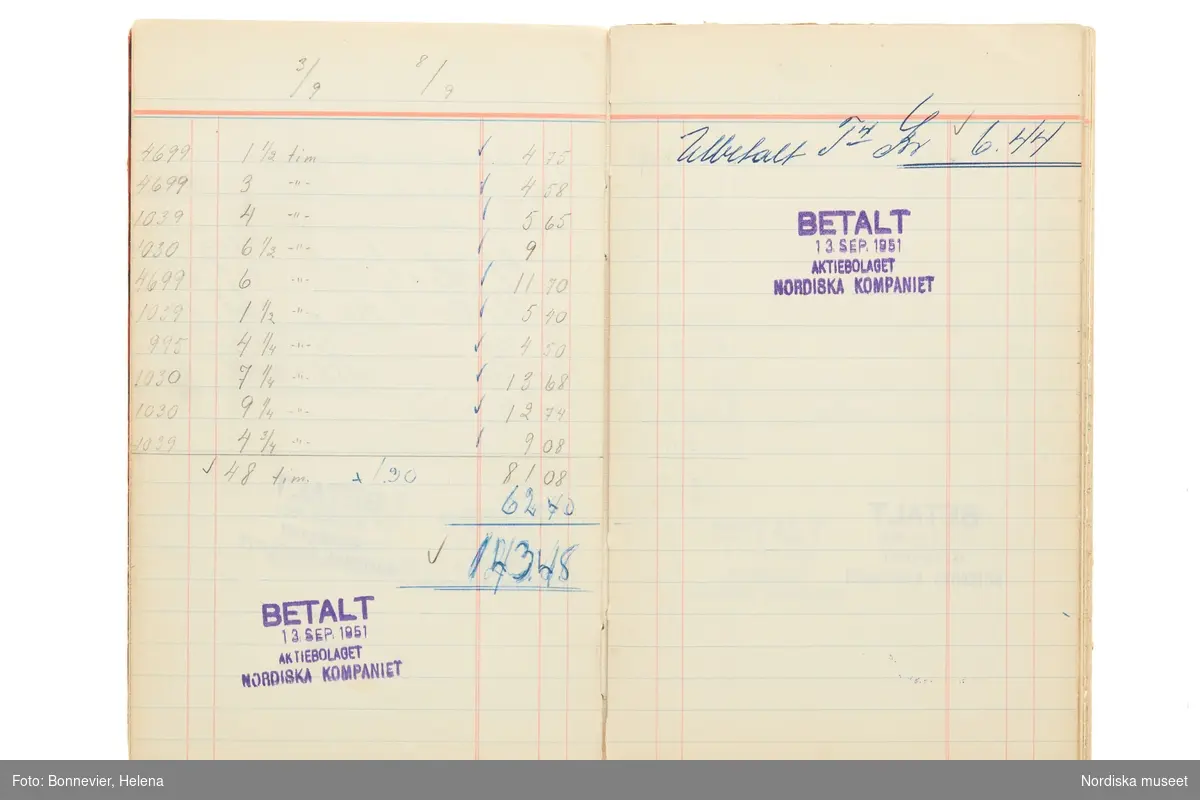 3/9 8/9
4699 1 1/2 tim ✓ 4 75
4699 3 -"- ✓ 4 58
1039 4 -"- ✓ 5 65
1030 6 1/2 -"- ✓ 9
4699 6 -"- ✓ 11 70
1039 1 1/2 -"- ✓ 5 40
995 4 1/4 -"- ✓ 4 50
1030 7 1/4 -"- ✓ 13 68
1030 9 1/4 -"- ✓ 12 74
1039 4 3/4 -"- ✓ 9 08
✓ 48 tim. 1.90 81 08
62 40
✓ 143.48
BETALT
13. SEP. 1951
AKTIEBOLAGET
NORDISKA KOMPANIET
Utbetalt Kr ✓ 6.44
BETALT
13 SEP. 1951
AKTIEBOLAGET
NORDISKA KOMPANIET
Foto: Bonnevier, Helena
Nordiska museet